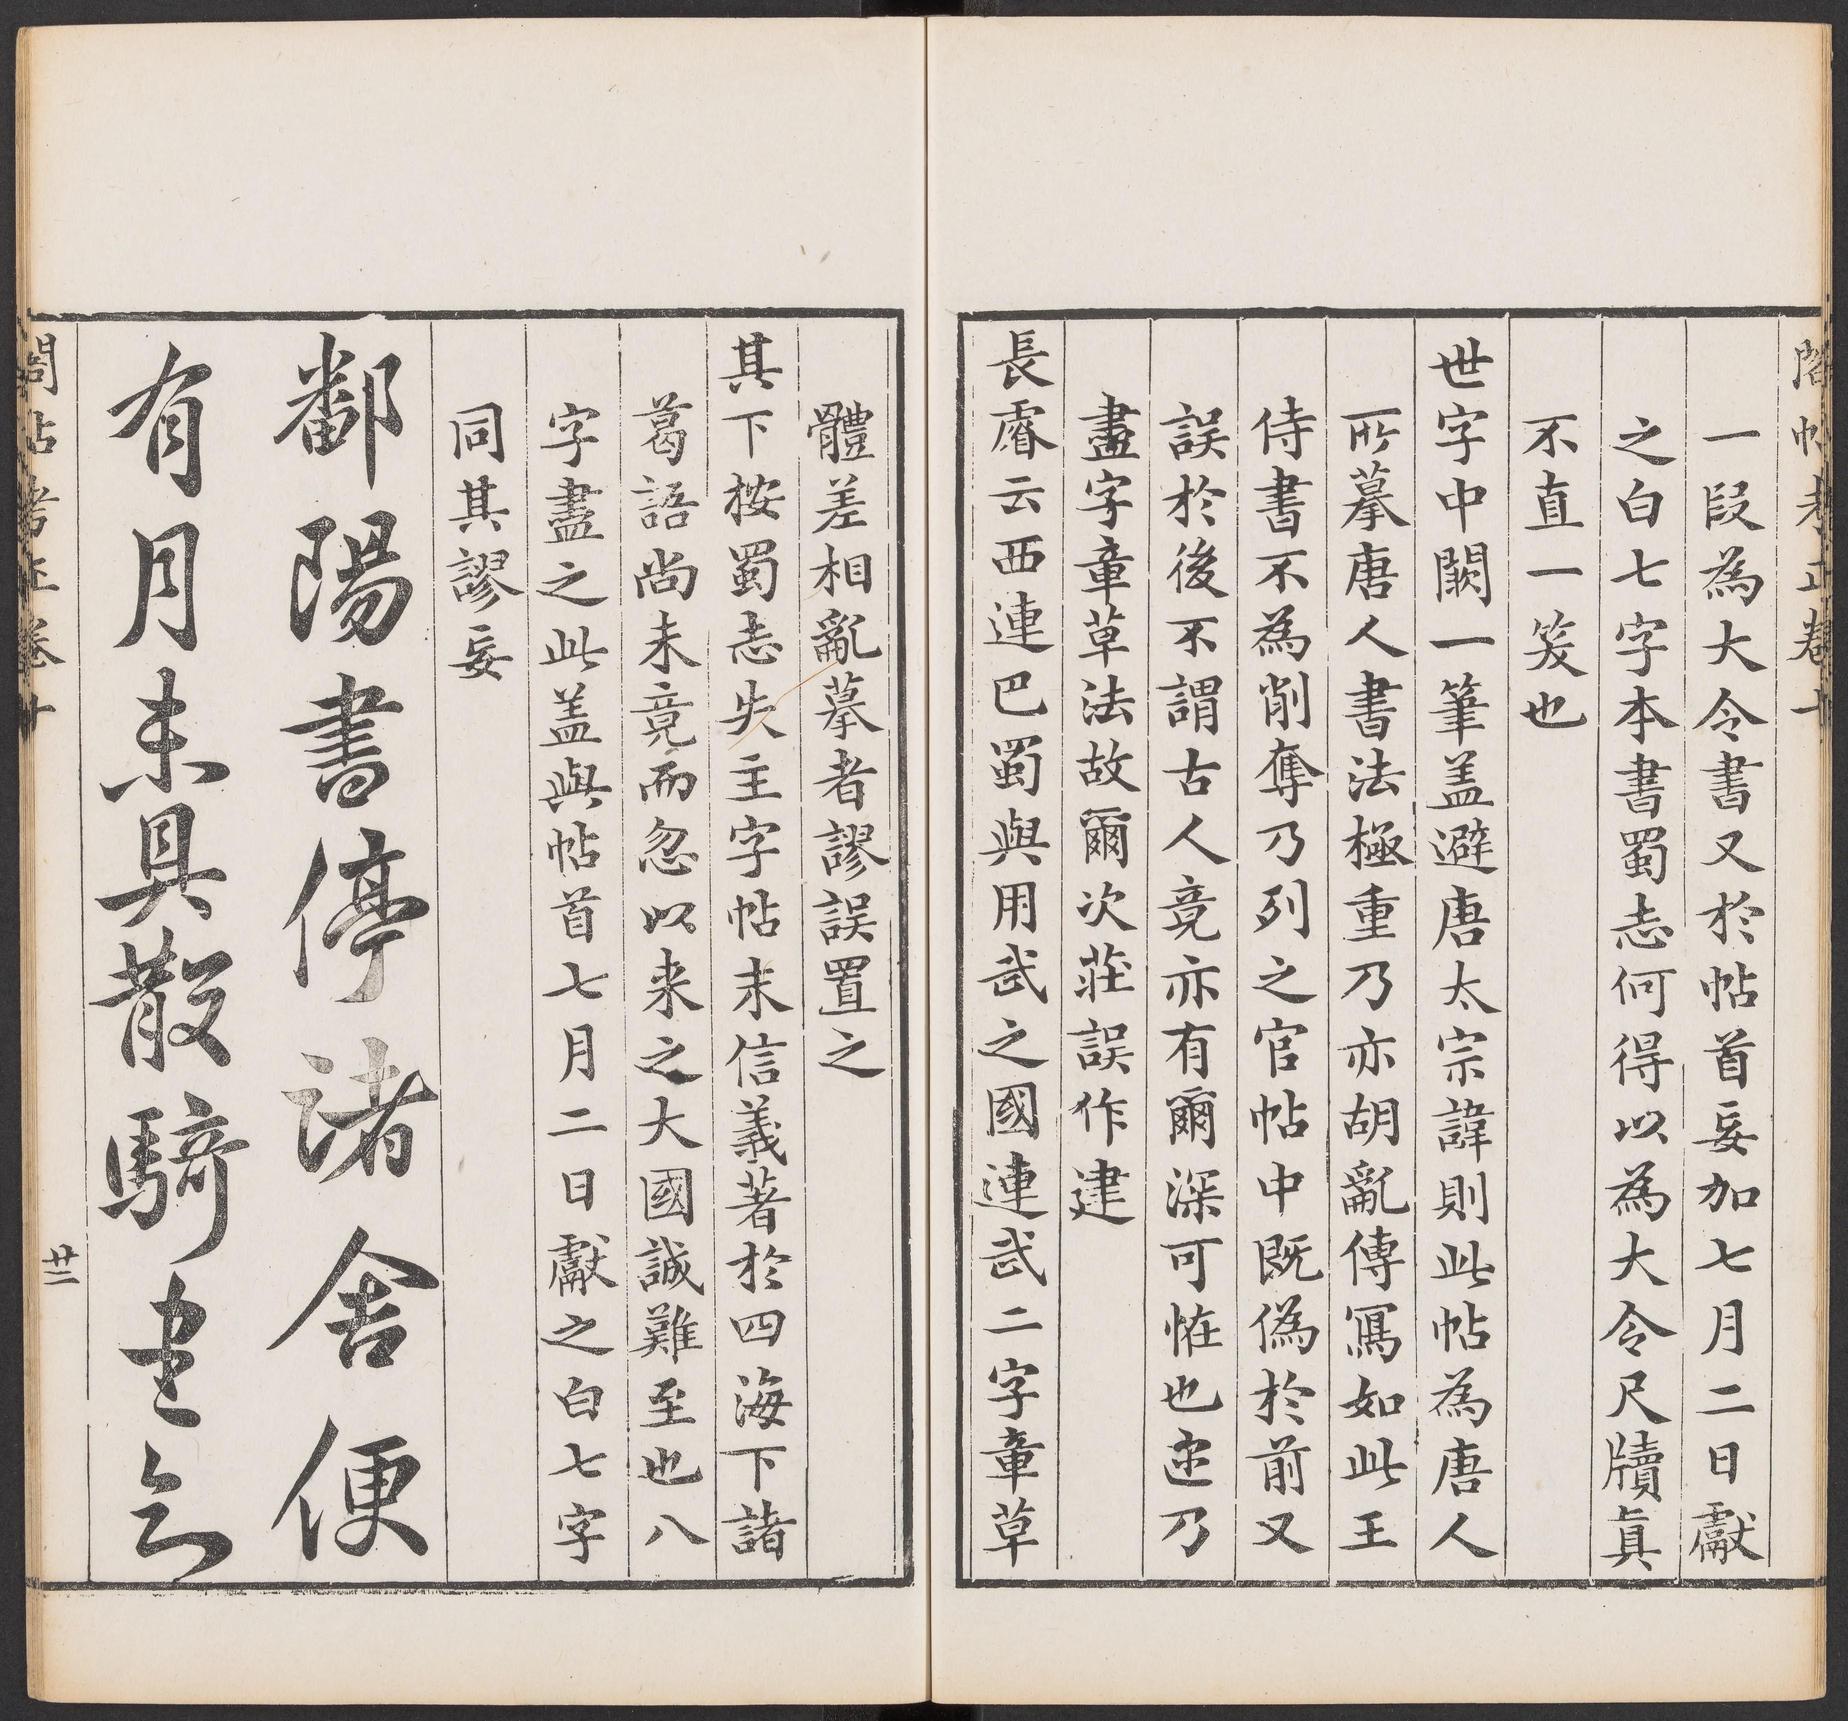 閣帖考正卷十
一段為大令書又於帖首妄加七月二日獻
之白七字本書蜀志何得以為大令尺牘真
不直一笑也
世字中闕一筆盖避唐太宗諱則此帖為唐人
所摹唐人書法極重乃亦胡亂傳寫如此王
侍書不為削奪乃列之官帖中既偽於前又
誤於後不謂古人竟亦有爾深可恠也迹乃
盡字章草草法故爾次莊誤作建
長睿云西連巴蜀與用武之國連武二字章草
體差相亂摹者謬誤置之
其下按蜀志失主字帖末信義著於四海下諸
葛語尚未竟而忽以来之大國誠難至也八
字盡之此盖與帖首七月二日獻之白七字
同其謬妄
鄱陽書停諸舍便
有月未具散騎書云
閣帖考正卷十
廿二